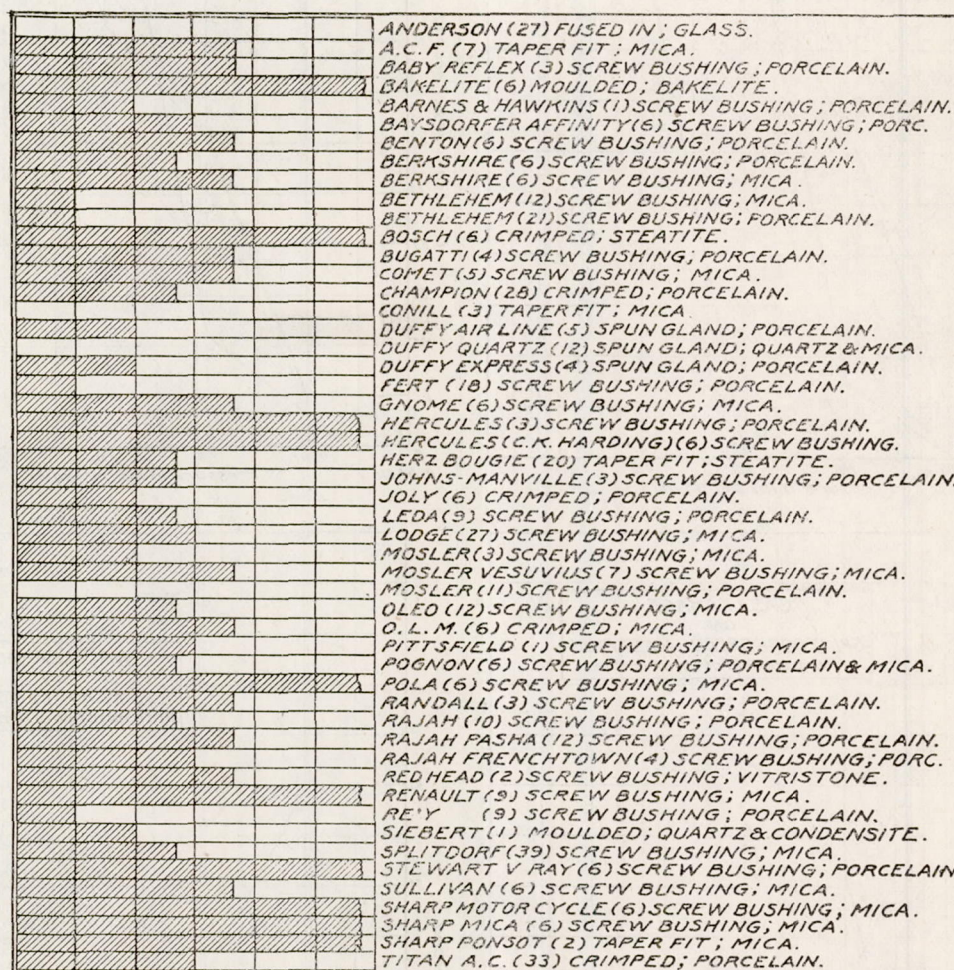 ANDERSON (27) FUSED IN; GLASS.
A.C.F. (7) TAPER FIT; MICA.
BABY REFLEX (3) SCREW BUSHING; PORCELAIN.
BAKELITE (6) MOULDED; BAKELITE.
BARNES & HAWKINS (1) SCREW BUSHING; PORCELAIN.
BAYSDORFER AFFINITY (6) SCREW BUSHING; PORC.
BENTON (6) SCREW BUSHING; PORCELAIN.
BERKSHIRE (6) SCREW BUSHING; PORCELAIN.
BERKSHIRE (6) SCREW BUSHING; MICA.
BETHLEHEM (12) SCREW BUSHING; MICA.
BETHLEHEM (21) SCREW BUSHING; PORCELAIN.
BOSCH (6) CRIMPED; STEATITE.
BUGATTI (4) SCREW BUSHING; PORCELAIN.
COMET (5) SCREW BUSHING; MICA.
CHAMPION (28) CRIMPED; PORCELAIN.
CONILL (3) TAPER FIT; MICA
DUFFY AIR LINE (5) SPUN GLAND; PORCELAIN.
DUFFY QUARTZ (12) SPUN GLAND; QUARTZ & MICA.
DUFFY EXPRESS (4) SPUN GLAND; PORCELAIN.
FERT (18) SCREW BUSHING; PORCELAIN.
GNOME (6) SCREW BUSHING; MICA.
HERCULES (3) SCREW BUSHING; PORCELAIN.
HERCULES (C.K. HARDING) (6) SCREW BUSHING.
HERZ BOUGIE (20) TAPER FIT; STEATITE.
JOHNS-MANVILLE (3) SCREW BUSHING; PORCELAIN.
JOLY (6) CRIMPED; PORCELAIN.
LEDA (9) SCREW BUSHING; PORCELAIN.
LODGE (27) SCREW BUSHING; MICA.
MOSLER (3) SCREW BUSHING; MICA.
MOSLER VESUVIUS (7) SCREW BUSHING; MICA.
MOSLER (11) SCREW BUSHING; PORCELAIN.
OLEO (12) SCREW BUSHING; MICA.
O.L.M. (6) CRIMPED; MICA.
PITTSFIELD (1) SCREW BUSHING; MICA.
POGNON (6) SCREW BUSHING; PORCELAIN & MICA.
POLA (6) SCREW BUSHING; MICA.
RANDALL (3) SCREW BUSHING; PORCELAIN.
RAJAH (10) SCREW BUSHING; PORCELAIN.
RAJAH PASHA (12) SCREW BUSHING; PORCELAIN.
RAJAH FRENCHTOWN (4) SCREW BUSHING; PORC.
RED HEAD (2) SCREW BUSHING; VITRISTONE.
RENAULT (9) SCREW BUSHING; MICA.
(9) SCREW BUSHING; PORCELAIN.
SIEBERT (1) MOULDED; QUARTZ & CONDENSITE.
SPLITDORF (39) SCREW BUSHING; MICA.
STEWART V RAY (6) SCREW BUSHING; PORCELAIN
SULLIVAN (6) SCREW BUSHING; MICA.
SHARP MOTOR CYCLE (6) SCREW BUSHING; MICA.
SHARP MICA (6) SCREW BUSHING; MICA.
SHARP PONSOT (2) TAPER FIT; MICA.
TITAN A.C. (33) CRIMPED; PORCELAIN.